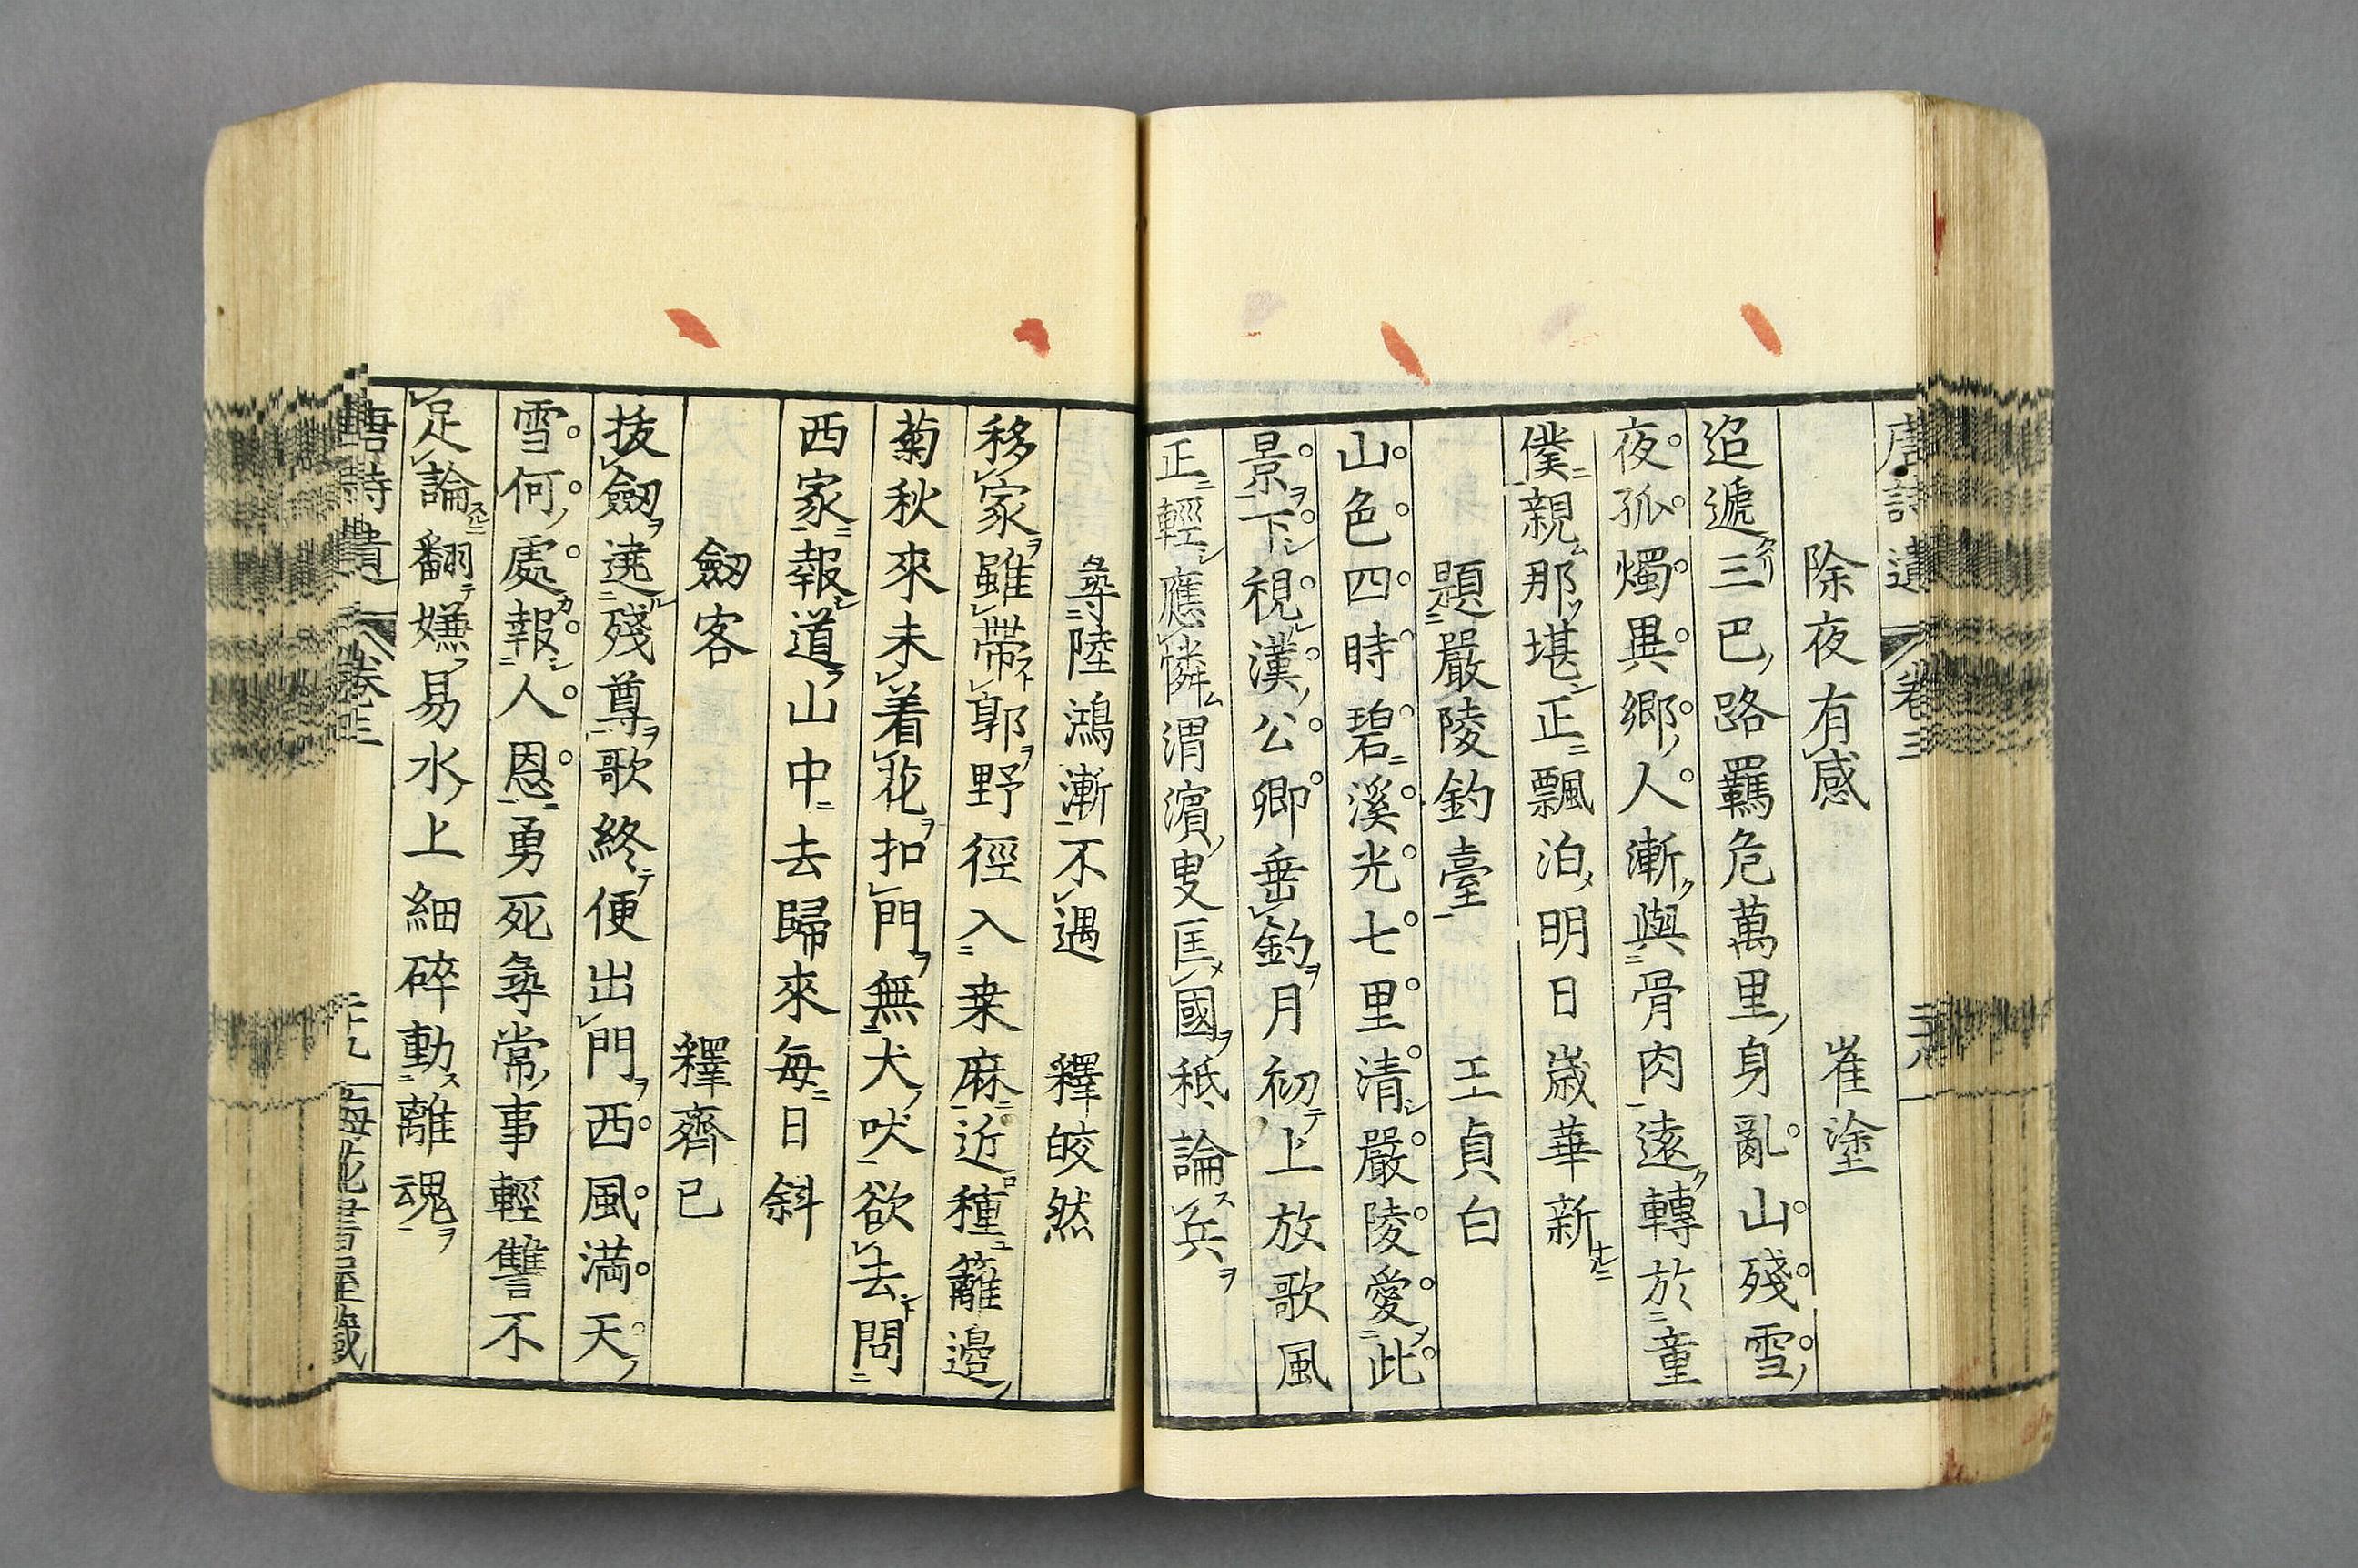 唐詩遺 卷三 二十八
除夜有感 崔塗
迢遞三巴路羈危萬里身亂山殘雪
夜孤燭異鄉人漸與骨肉遠轉於童
僕親那堪正飄泊明日歲華新
題嚴陵釣臺 王貞白
山色四時碧溪光七里清嚴陵愛此
景下視漢公卿垂釣月初上放歌風
正輕應憐渭濱叟匡國秪論兵
尋陸鴻漸不遇 釋皎然
移家雖帶郭野徑入桒麻近種籬邊
菊秋來未着花扣門無犬吠欲去問
西家報道山中去歸來每日斜
劒客 釋齊已
拔劒遶殘尊歌終便出門西風満天
雪何處報人恩勇死尋常事輕讐不
足論翻嫌易水上細碎動離魂
唐詩遺 卷三 二十九